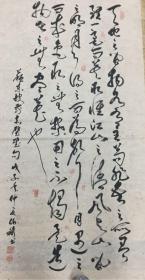 天地之間物各有主苟非吾之所有
雖一毫而莫取惟江上之清風與山間
之明月耳得之而為聲目遇之而
成色取之無禁用之不竭是造
物者之無盡藏也
蘇東坡前赤壁賦句